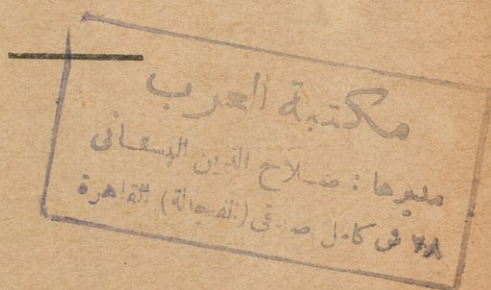 مكتبة العرب
مديرها : صلاح الدين البستانى
٢٨ ش كامل صدقى (الفجالة) القاهرة